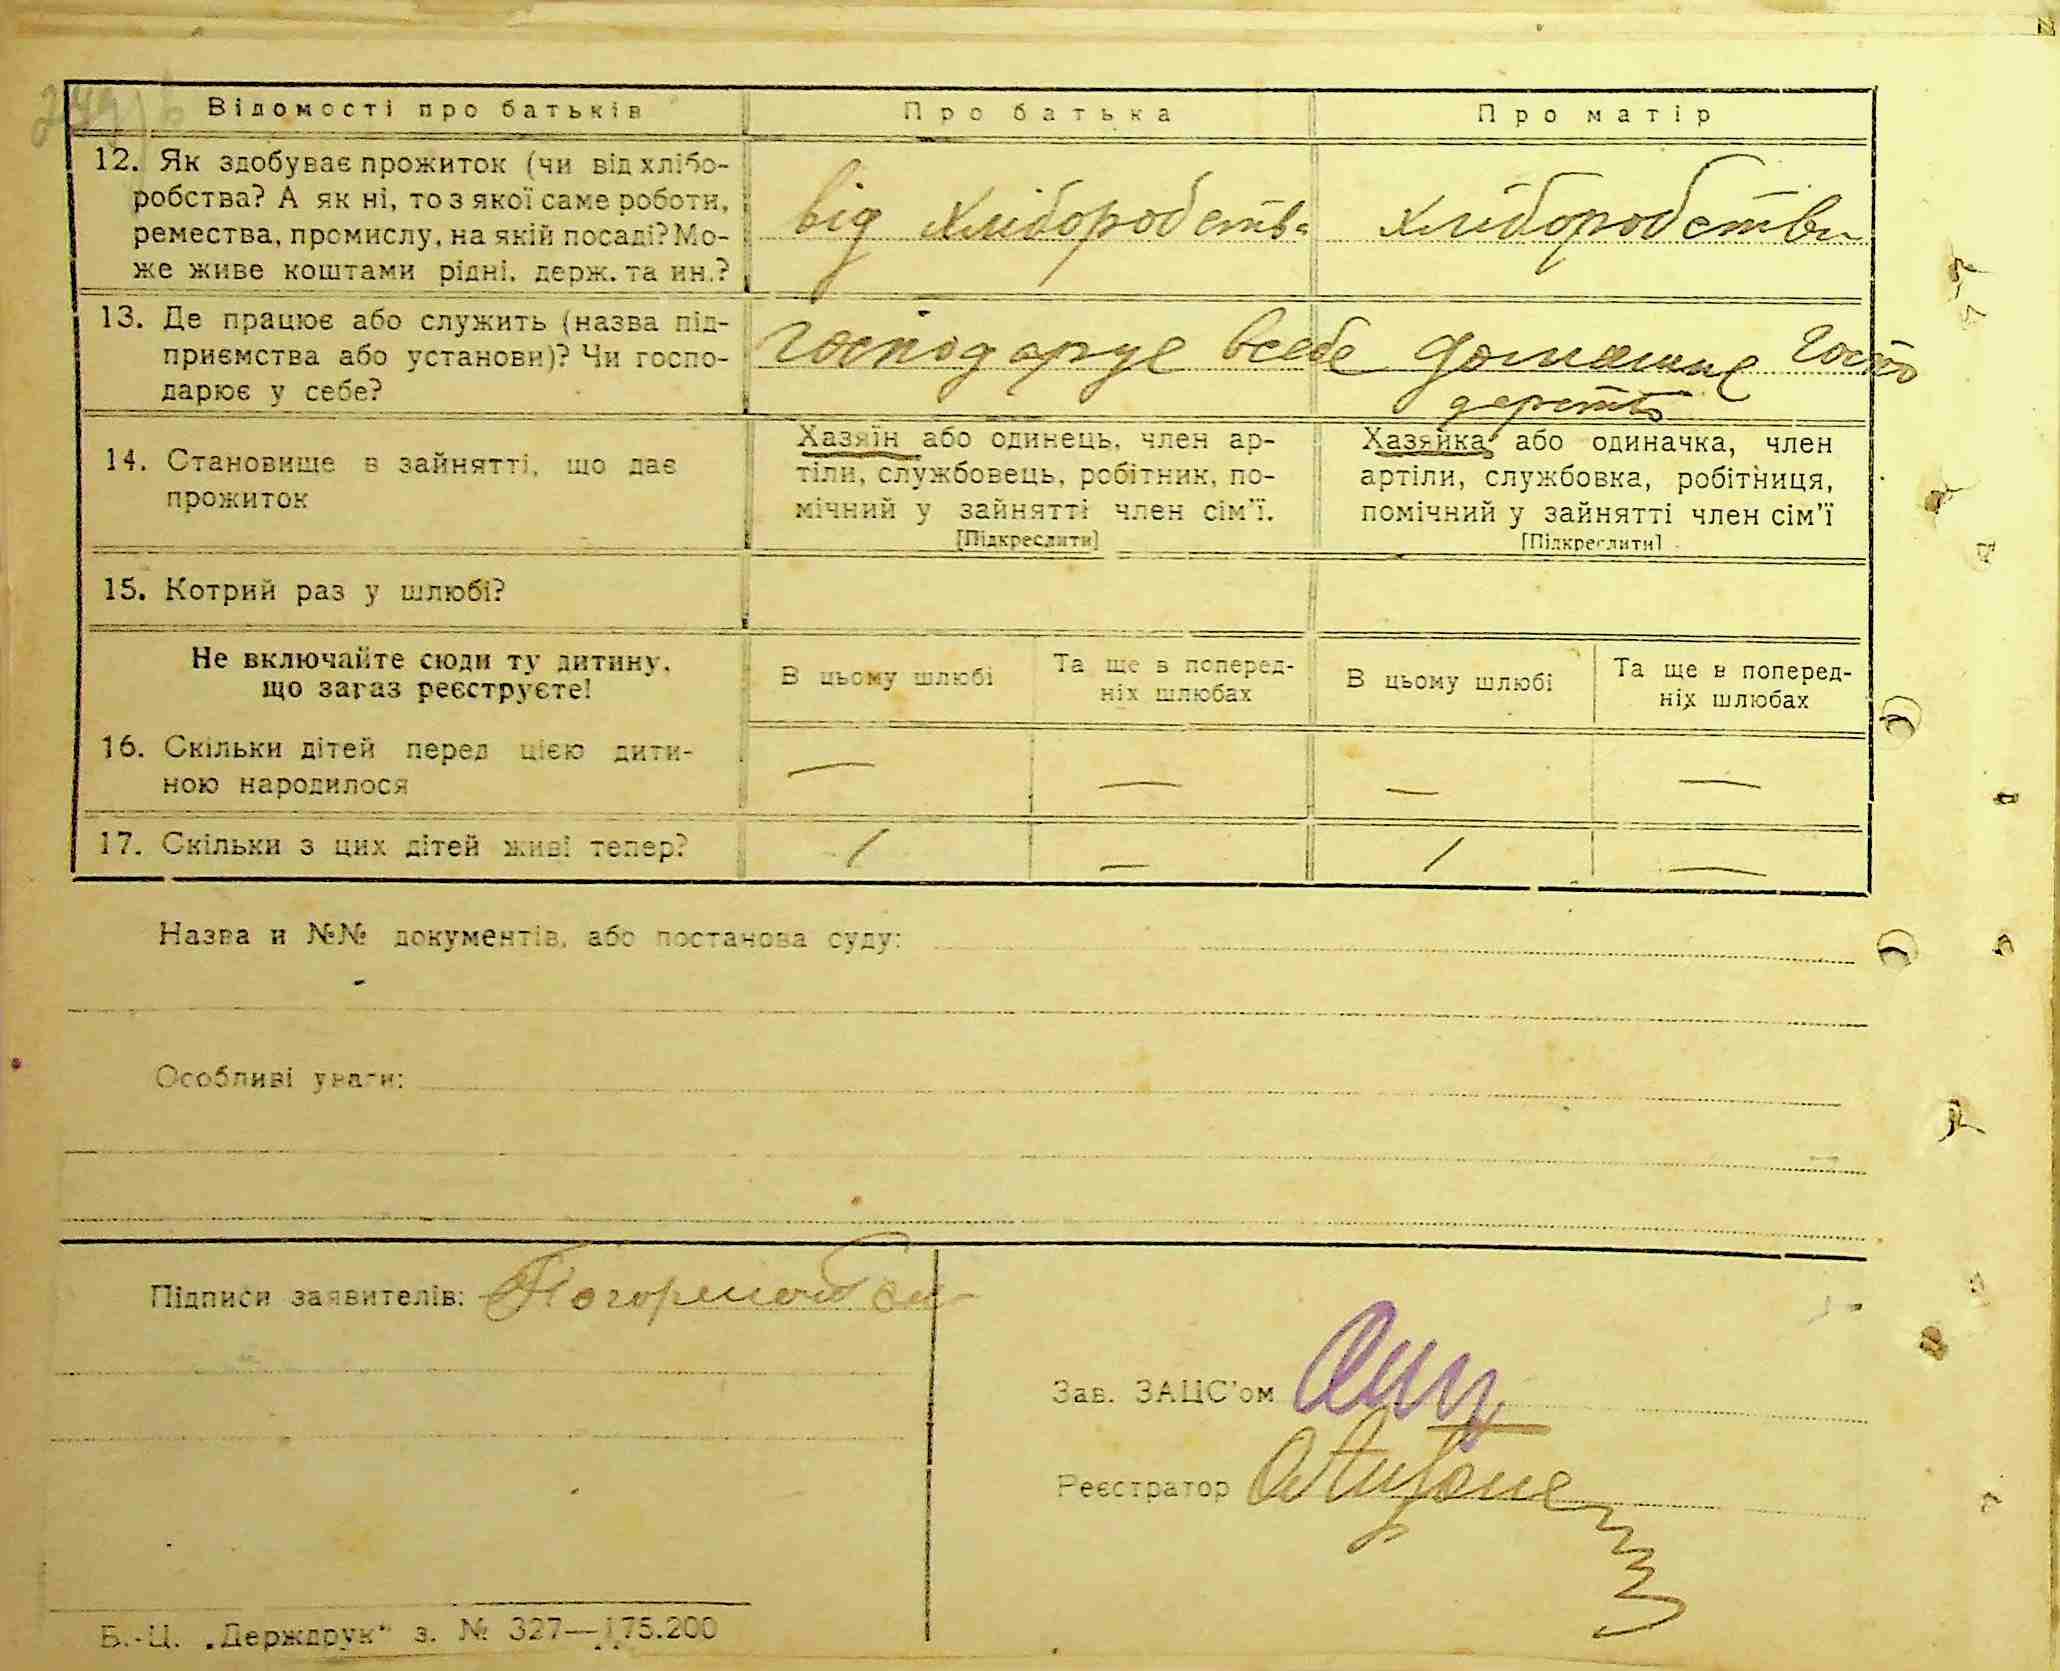 Відомості про батьків
Про батька
Про матір
12. Як здобуває прожиток (чи від хлібо-
робства? А як ні, то з якої саме роботи,
ремества, промислу, на якій посаді? Мо-
же живе коштами рідні, держ. та ин.?
від хліборобства
хліборобства
13. Де працює або служить (назва під-
приємства або установи)? Чи госпо-
дарює у себе?
господарує всебе
домашнє госпо
дарство
14. Становище в зайнятті, що дає
прожиток
Хазяїн або одинець, член ар-
тіли, службовець, робітник, по-
мічний у зайнятті член сім'ї.
[Підкреслити]
Хазяйка або одиначка, член
артіли, службовка, робітниця,
помічний у зайнятті член сім'ї
[Підкреслити]
15. Котрий раз у шлюбі?
Не включайте сюди ту дитину,
що зараз реєструєте!
В цьому шлюбі
Та ще в поперед-
ніх шлюбах
В цьому шлюбі
Та ще в поперед-
ніх шлюбах
16. Скільки дітей перед цією дити-
ною народилося
— — — —
17. Скільки з цих дітей живі тепер?
/ — / —
Назва и №№ документів, або постанова суду:
Особливі уваги:
Підписи заявителів:
Зав. ЗАЦС'ом
Реєстратор
Б.-Ц. „Держдрук“ з. № 327—175.200